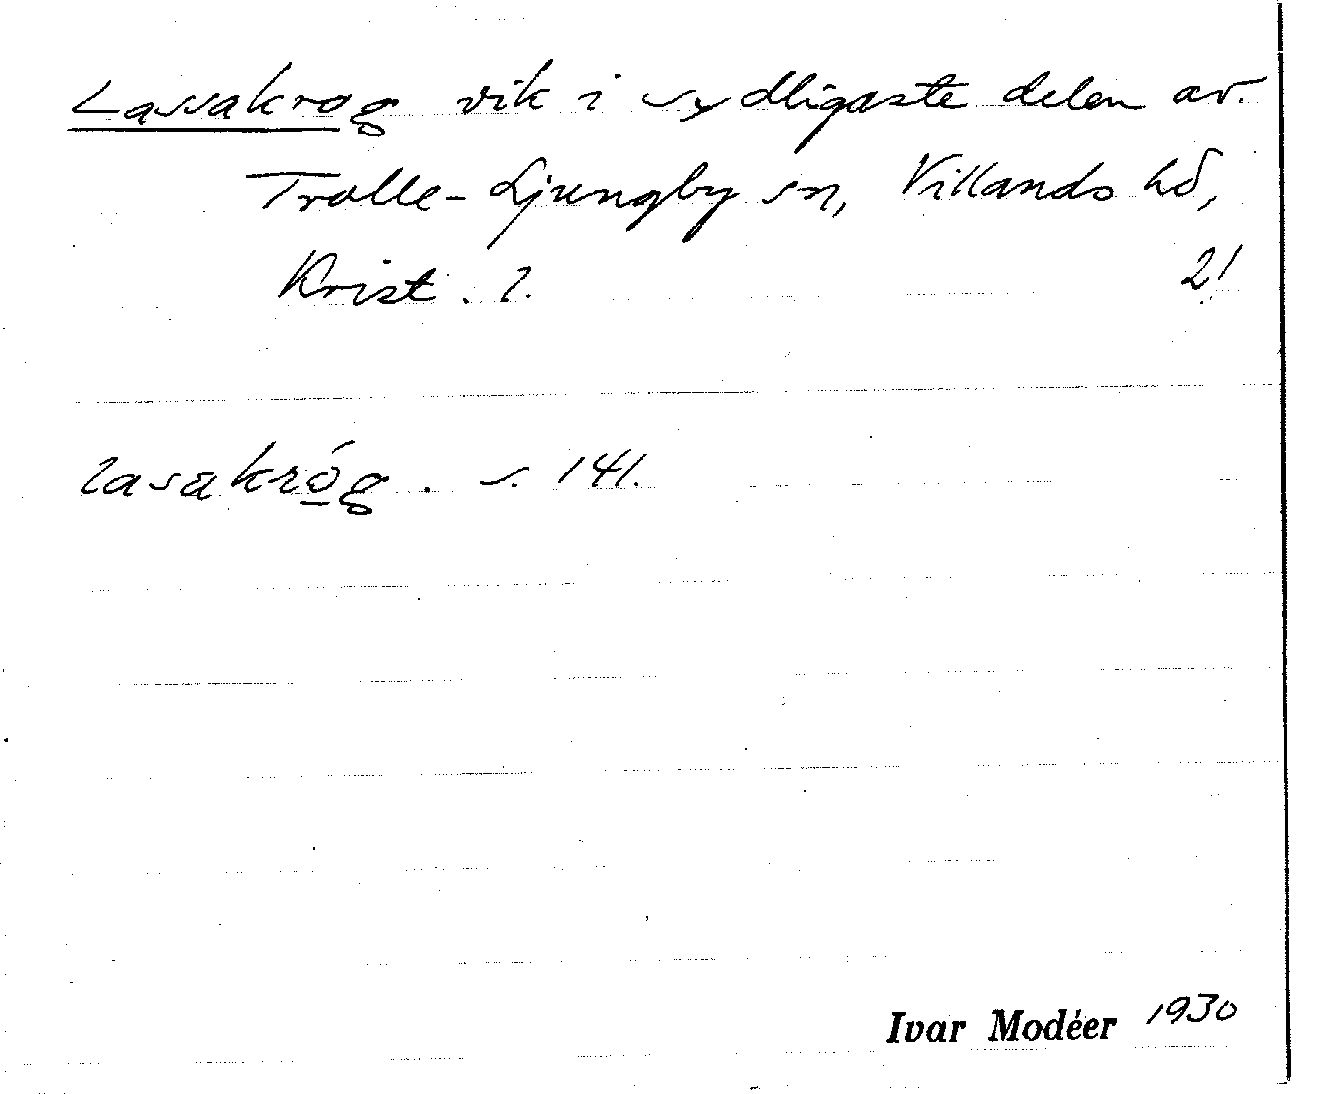 Lassakrog vik i sydligaste delen av.
Trolle-Ljungby sn, Villands hd,
Krist. l. 2!
lasakróg. s. 141.
Ivar Modéer 1930